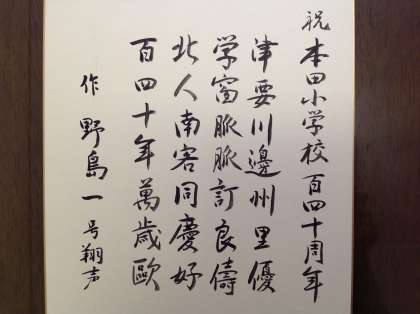 祝 本田小学校百四十周年
津要川邊州里優
学窗脈脈訂良儔
北人南客同慶好
百四十年萬歳歐
作 野島一 号翔声